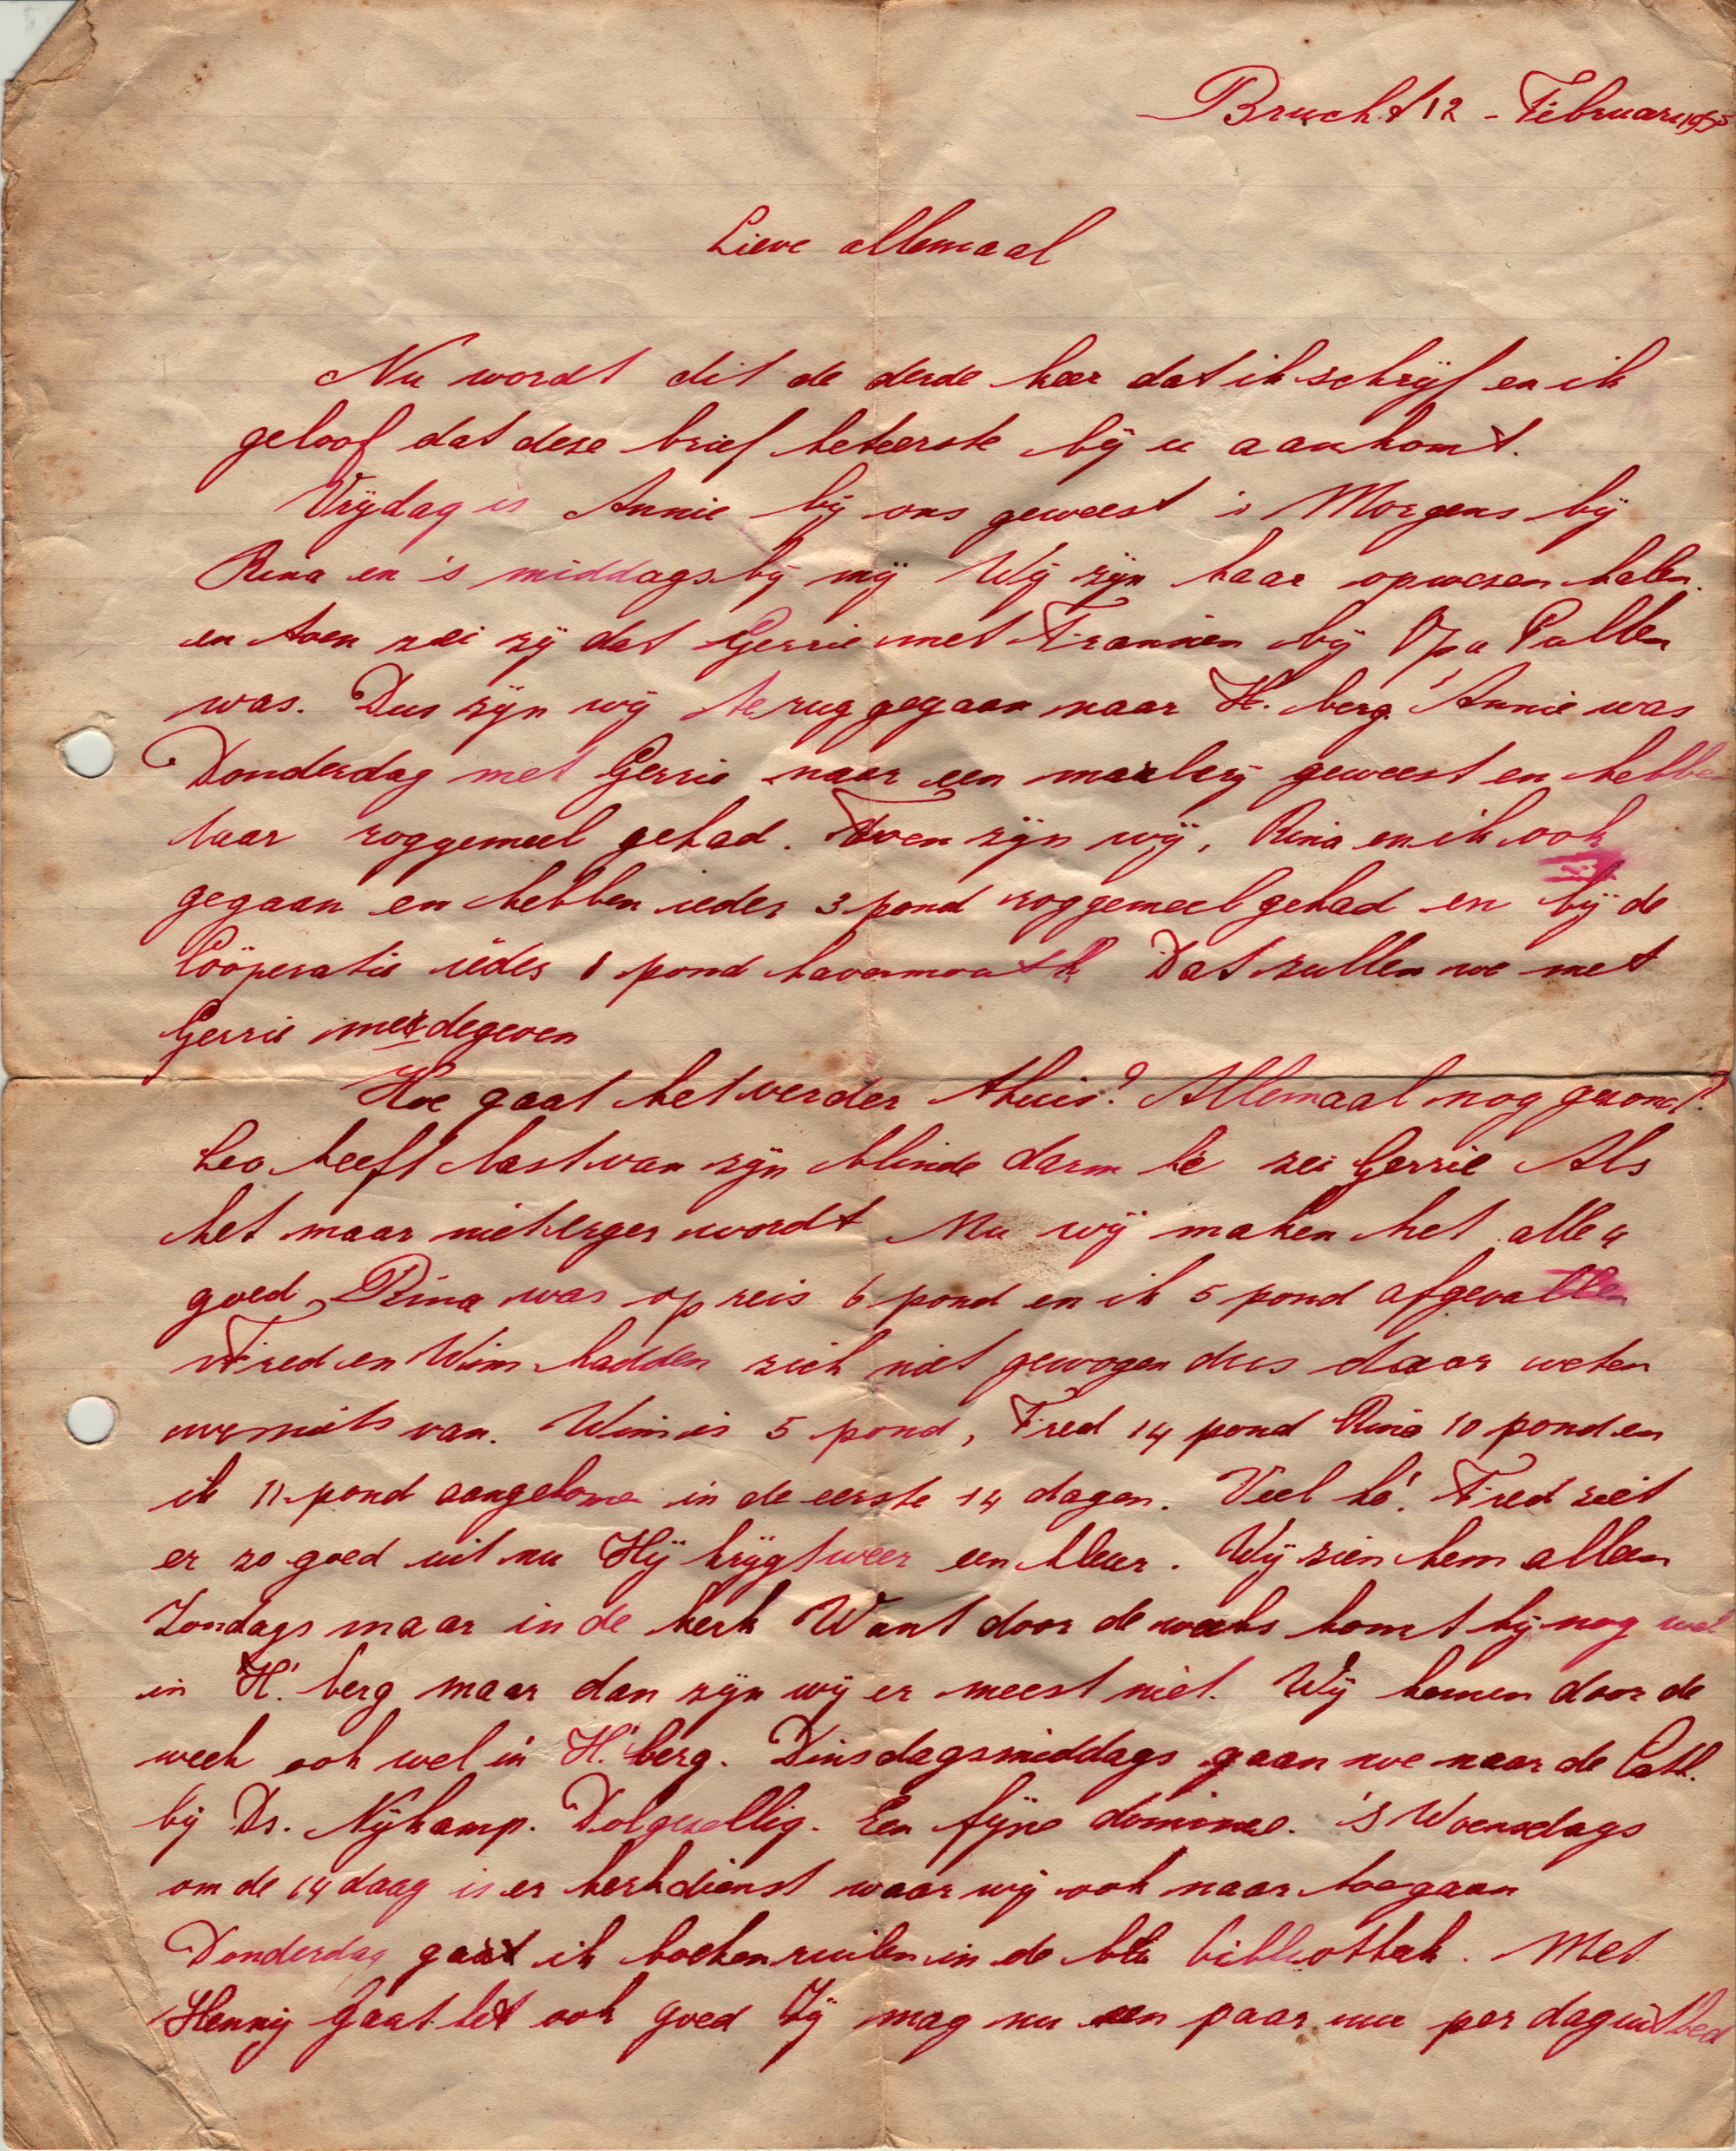 Brucht 12 - Februari 1945
Lieve allemaal
Nu wordt dit de derde keer dat ik schrijf en ik
geloof dat deze brief het eerste bij u aankomt.
Vrijdag is Annie bij ons geweest 's Morgens bij
Rina en 's middags bij mij Wij zijn haar op wezen halen.
en toen zei zij dat Gerrie met Transien bij Opa Pullen
was. Dus zijn wij teruggegaan naar H.'berg. Annie was
Donderdag met Gerrie naar een maalerij geweest en hebben
daar roggemeel gehad. Toen zijn wij, Rina en ik ook
gegaan en hebben ieder 3 pond roggemeel gehad en bij de
Coöperatie ieder 1 pond havermout Dat zullen we met
Gerrie meedegeven
Hoe gaat het verder thuis? Allemaal nog gezond?
Leo heeft last van zijn blinde darm hè zei Gerrie Als
het maar niet erger wordt Nu wij maken het alle 4
goed, Rina was op reis 6 pond en ik 5 pond afgevallen
Fred en Wim hadden zich niet gewogen dus daar weten
we niets van. Wim is 5 pond, Fred 14 pond Rina 10 pond en
ik 11 pond aangekome in de eerste 14 dagen. Veel hè! Fred ziet
er zo goed uit nu Hij krijgt weer een kleur. Wij zien hem alleen
Zondags maar in de kerk Want door de weeks komt hij nog wel
in H.'berg maar dan zijn wij er meest niet. Wij komen door de
week ook wel in H.'berg. Dinsdagsmiddags gaan we naar de Cath.
bij Ds. Nijkamp. Dolgezellig. Een fijne dominee. 's Woensdags
om de 14 daag is er kerkdienst waar wij ook naar toegaan
Donderdag gaat ik boeken ruilen in de bibliotheek. Met
Henny gaat het ook goed Zij mag nu een paar uur per dag uit bed